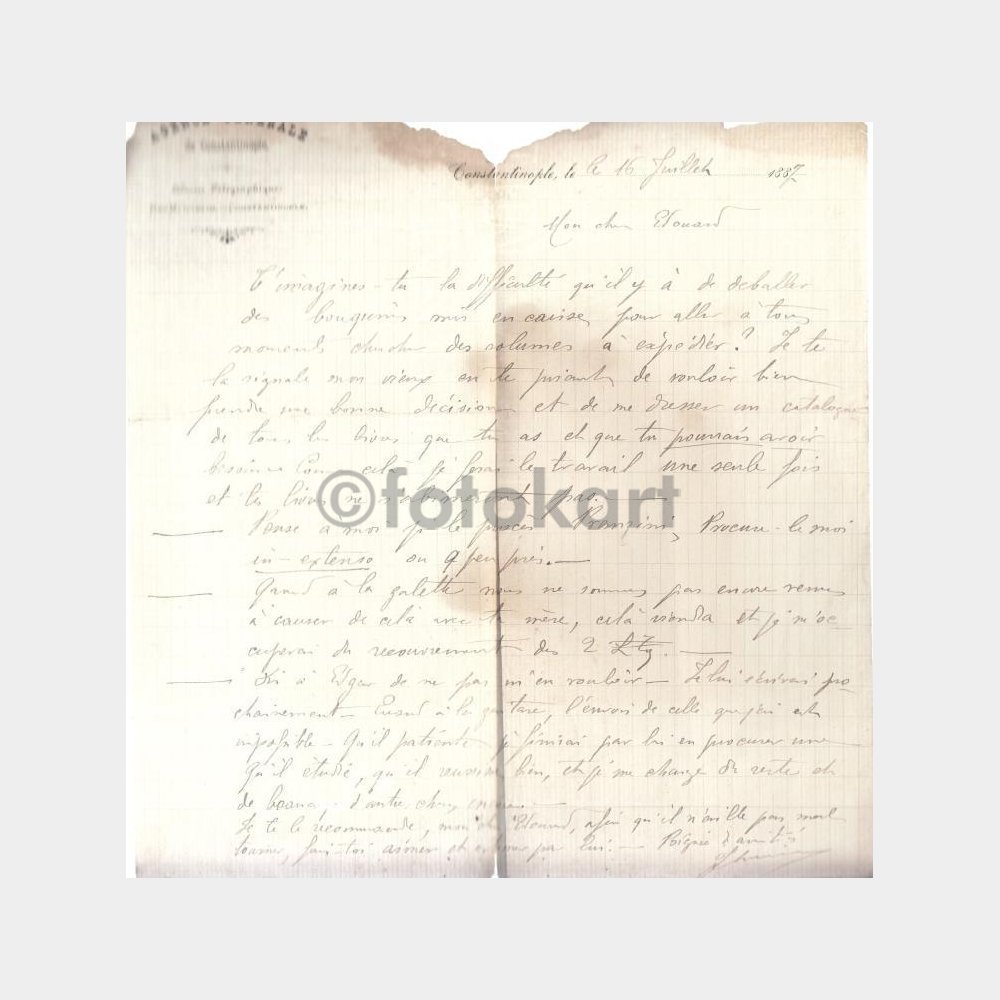 AGENCE GÉNÉRALE
de Constantinople
Constantinople, le le 16 Juillet 1887
Mon cher Edouard
T'imagines-tu la difficulté qu'il y à de deballer
des bouquins mis en caisses pour aller à tous
moments chercher des volumes à expédier? Je te
la signale mon vieux en te priant de vouloir bien
prendre une bonne décision et de me dresser un catalogue
de tous les livres que tu as et que tu pourrais avoir
besoin. Comme celà je ferai le travail une seule fois
et les livres ne s'abimeront pas. —
— Pense à moi p. le procès Pranzini, Procure-le moi
in-extenso ou à peu près. —
— Quand à la galette nous ne sommes pas encore venus
à causer de celà avec ta mère, celà viendra et je m'oc-
cuperai du recouvrement des 2 Ltq. —
— Dis à Edgar de ne pas m'en vouloir — Je lui écrirai pro-
chainement — Quand à la guitare, l'envoi de celle que j'ai est
impossible — Qu'il patiente je finirai par lui en procurer une
Qu'il étudie, qu'il réussisse bien, et je me charge du reste et
de beaucoup d'autres choses encore. —
Je te le recommande, mon cher Edouard, afin qu'il n'aille pas mal
tourner, fais-toi aimer et estimer par lui. — Poignée d'amitié
©fotokart